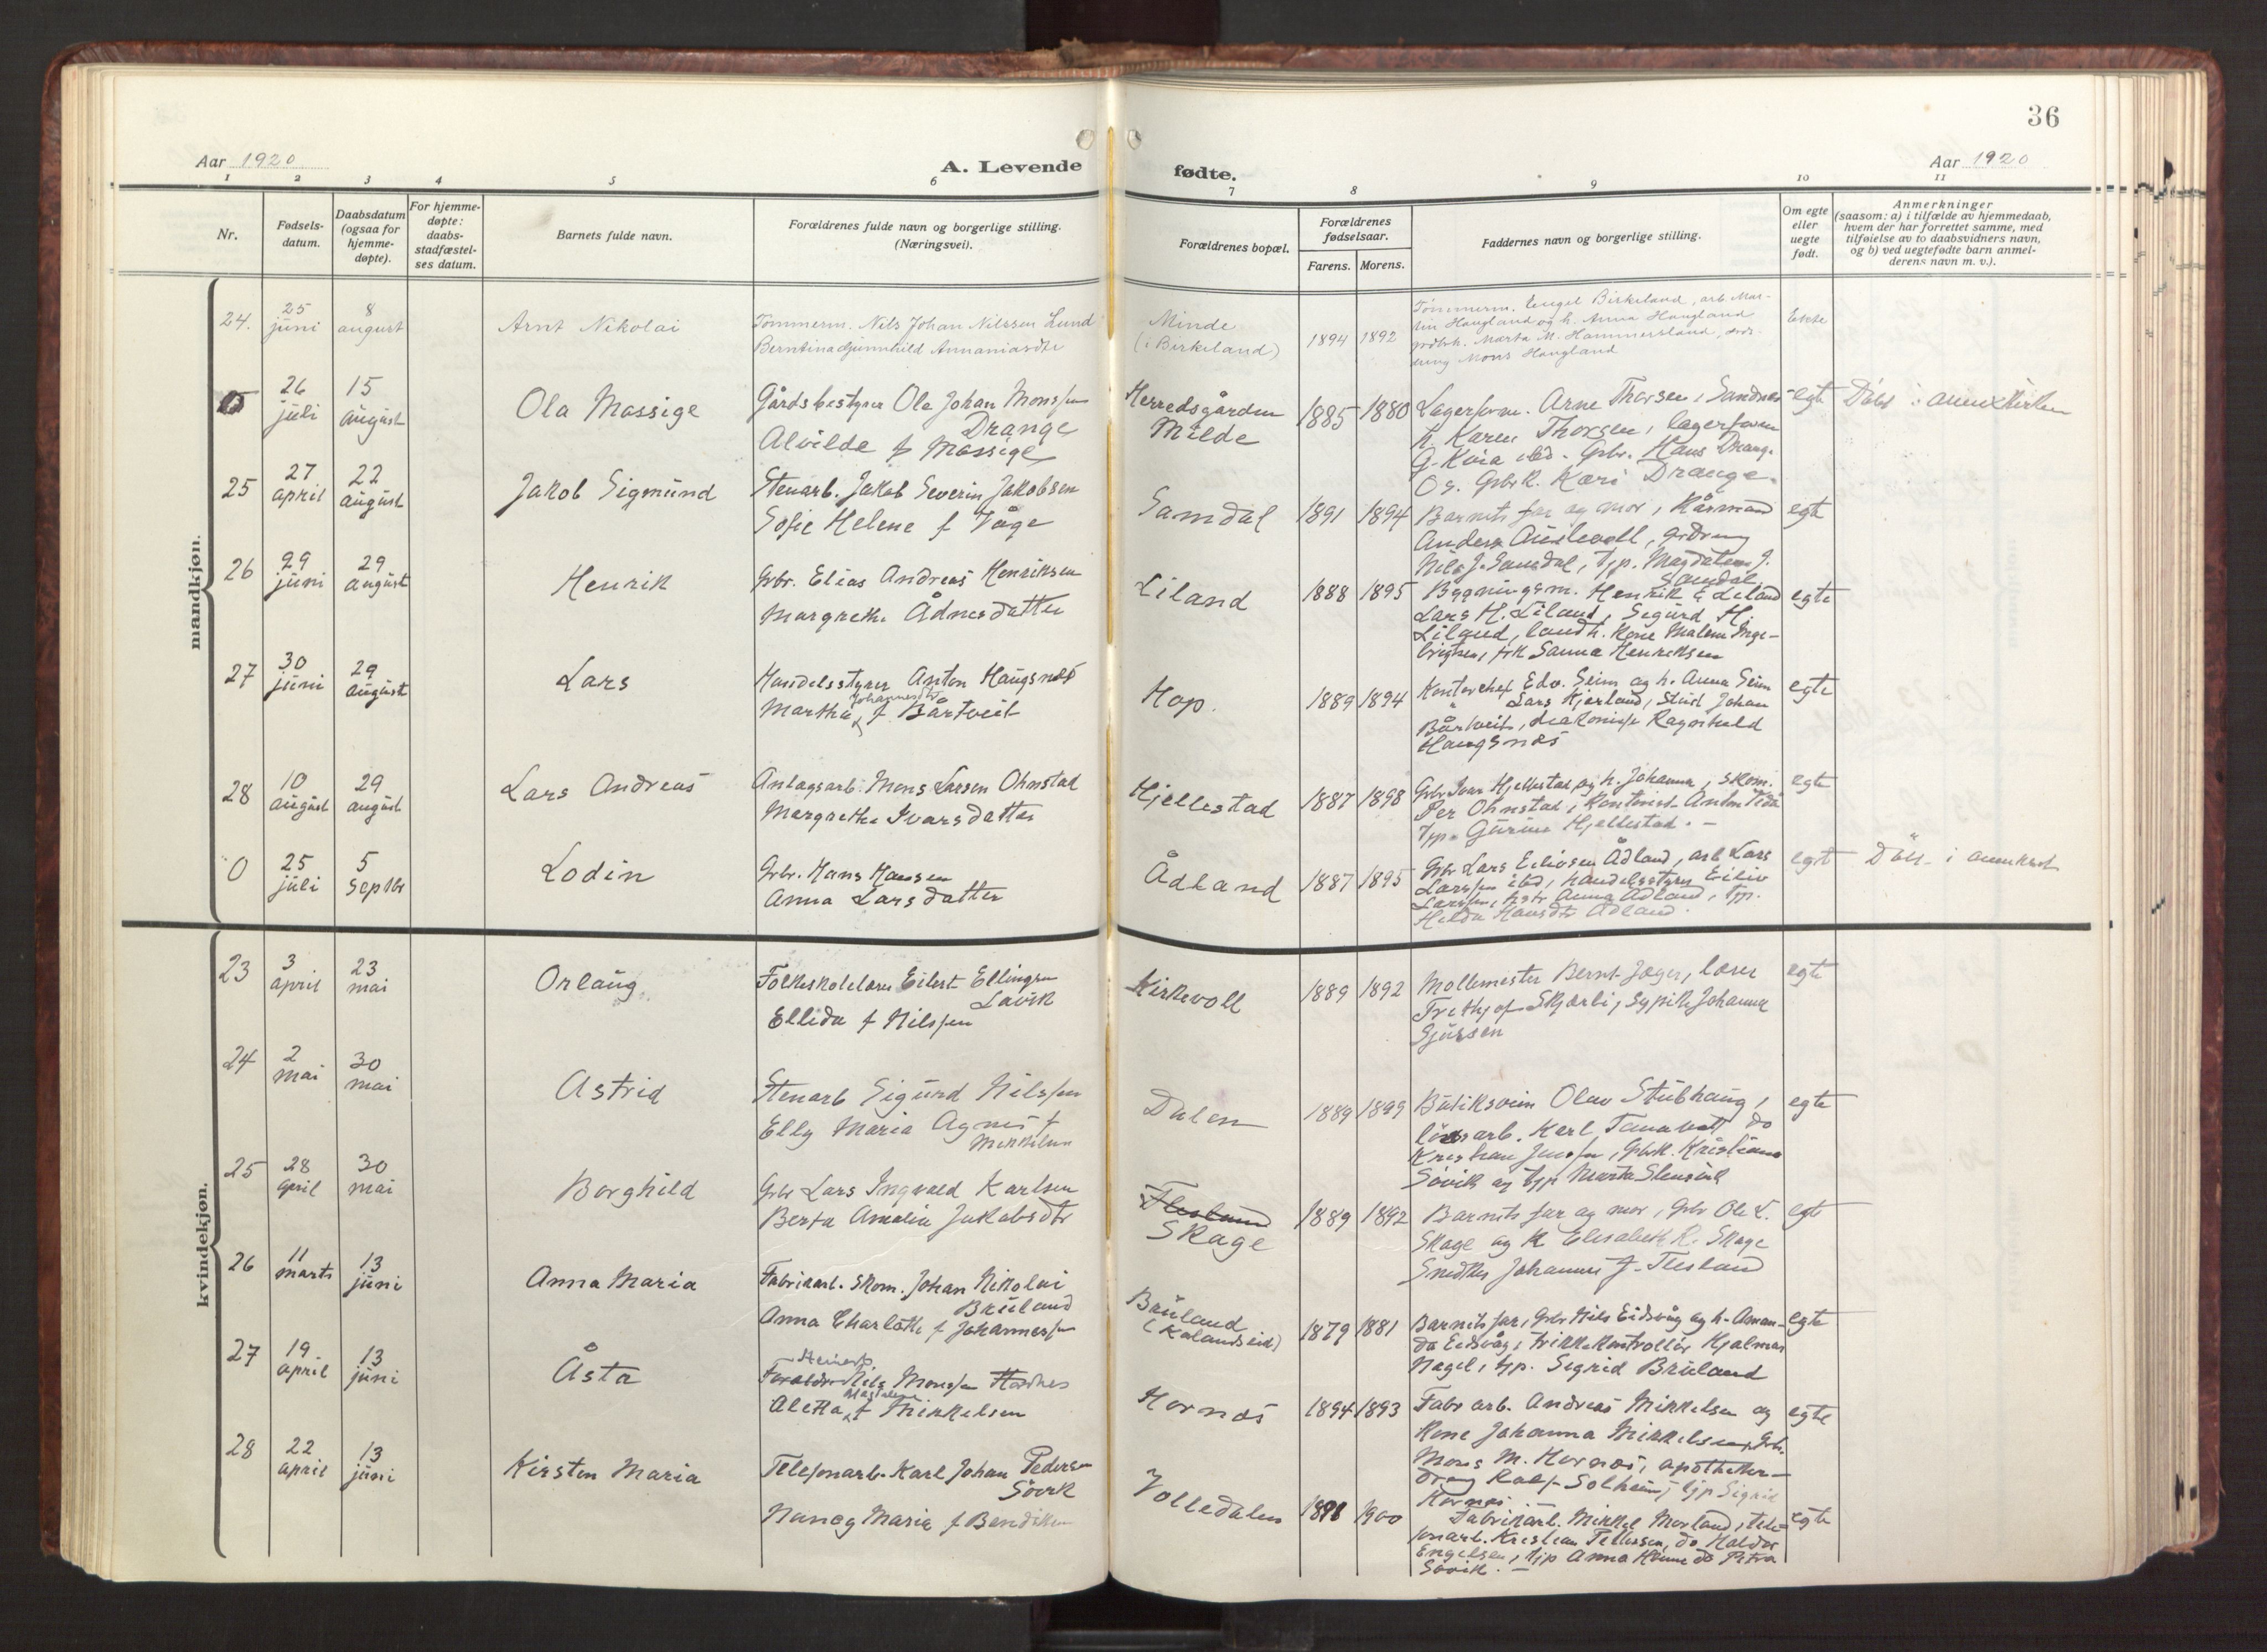 36
Aar 1920
A. Levende
fødte.
Aar 1920
1 2 3 4 5 6 7 8 9 10 11
Nr.
Fødsels-
datum.
Daabsdatum
(ogsaa for
hjemme-
døpte).
For hjemme-
døpte:
daabs-
stadfæstel-
ses datum.
Barnets fulde navn.
Forældrenes fulde navn og borgerlige stilling.
(Næringsvei).
Forældrenes bopæl.
Forældrenes
fødselsaar.
Farens. Morens.
Faddernes navn og borgerlige stilling.
Om egte
eller
uegte
født.
Anmerkninger
(saasom: a) i tilfælde av hjemmedaab,
hvem der har forrettet samme, med
tilføielse av to daabsvidners navn,
og b) ved uegtefødte barn anmel-
derens navn m. v.).
mandkjøn.
24.
25
juni
8
august
Arnt Nikolai
Tømmerm. Nils Johan Nilssen Lund
Berntina Gunnhild Annaniasdtr
Minde
(i Birkeland)
1894 1892
Tømmerm. Engel Birkeland, arb. Mar-
tin Haugland og h. Anna Haugland
grdbrk. Marta M. Hammersland,
Mons Haugland
Ekte
26
juli
15
august
Ola Massige
Gårdsbestyrer Ola Johan Monssen
Drange
Alvilde f Massige
Herredsgården
Milde
1885 1880
Lagerform. Arne Thorsen, Sandnes
h. Karen Thorsen, lagerform
G. Kvia ibd. Grbr. Hans Drange
Os. Grbrk. Kari Drange.
egte
Døbt i annexkirken
25
27
april
22
august
Jakob Sigmund
Stenarb. Jakob Severin Jakobsen
Sofie Helene f Våge
Samdal
1891 1894
Barnets far og mor, Kårmand
Anders Austevoll, grdrung
Nils J. Samdal, tjp. Magdalena J.
Samdal
egte
26
29
juni
29
august
Henrik
Grbr. Elias Andreas Henriksen
Margrethe Ådnesdatter
Liland
1888 1895
Bygningsm. Henrik E Liland
Lars H. Liland, Sigurd H.
Liland, landh. Kone Malene Inge-
brigtsen, frk Sanna Henriksen
egte
27
30
juni
29
august
Lars
Handelsstyrer Anton Haugsnes
Johannesdtr
Martha f. Bårtveit
Hop.
1889 1894
Kontorchef Edv. Seim og h. Anna Seim
" Lars Kjerland, Stud Johan
Bårtveit, diakonisse Ragnhild
Haugsnæs
egte
28
10
august
29
august
Lars Andreas
Anlagsarb. Mons Larsen Ohmstad
Margrethe Ivarsdatter
Hjellestad
1887 1898
Grbr Ivar Hjellestad og h. Johanna, skom.
Per Ohmstad, Kontorist Anton
tjp. Gurine Hjellestad. –
egte
0
25
juli
5
septbr
Lodin
Grbr. Hans Hansen
Anna Larsdatter
Ådland
1887 1895
Grbr Lars Eilivsen Ådland, arb Lars
Larssen ibd, handelsstyrer Eiliv
Larssen, hstr Anna Ådland, tjp.
Helda Hansdtr Ådland.
egte
Døbt i annexk
kvindekjøn.
23
3
april
23
mai
Orlaug
Folkeskolelærer Eilert Ellingsen
Lavik
Ellida f Nilssen
Kirkevoll
1889 1892
Møllemester Bernt Jæger, lærer
Frithjof Skjerli, sypike Johanna
Sjursen
egte
24
2
mai
30
mai
Astrid
Stenarb Sigurd Nilssen
Elly Maria Agnes f
Mikkelsen
Dalen
1889 1899
Butiksvein Olav Stubhaug,
løsarb. Karl do
Kristian Jenssen, Grbrk. Kristiane
Søvik og tjp Marta Stensvik
egte
25
28
april
30
mai
Borghild
Grbr Lars Ingvald Karlsen
Berta Amalia Jakobsdtr
Flesland
Skage
1889 1892
Barnets far og mor, Grbr Ole L.
Skage og k Elisabeth R. Skage
Snedker Johannes J. Flesland
egte
26
11
marts
13
juni
Anna Maria
Fabrikarb. Skom. Johan Nikolai
Bruland
Anna Charlotte f Johannessen
Bruland
(Kalandseid)
1879 1881
Barnets far, Grbr Nils Eidsvåg og h. Aman-
da Eidsvåg, trikkekontrollør Hjalmar
Nagel, tjp. Sigrid Bruland
egte
27
19
april
13
juni
Åsta
Stenarb
Nils Monssen Hordnes
Magdalena
Aletta f Mikkelsen
Hornæs
1894 1893
Fabr arb. Andreas Mikkelsen og
Kone Johanna Mikkelsen, Grbr.
Mons M. Hornæs, apotheker-
dreng Ralf Solheim, tjp Sigrid
Hornæs
egte
28
22
april
13
juni
Kirsten Maria
Telefonarb. Karl Johan Pedersen
Søvik
Nancy Marie f Bendiksen
Volledalen
1898 1900
Fabrikarb. Mikkel Morland, tele-
fonarb. Kristian Tellessen, do Haldor
Engelsen, tjp Anna do Petra
Søvik. –
egte